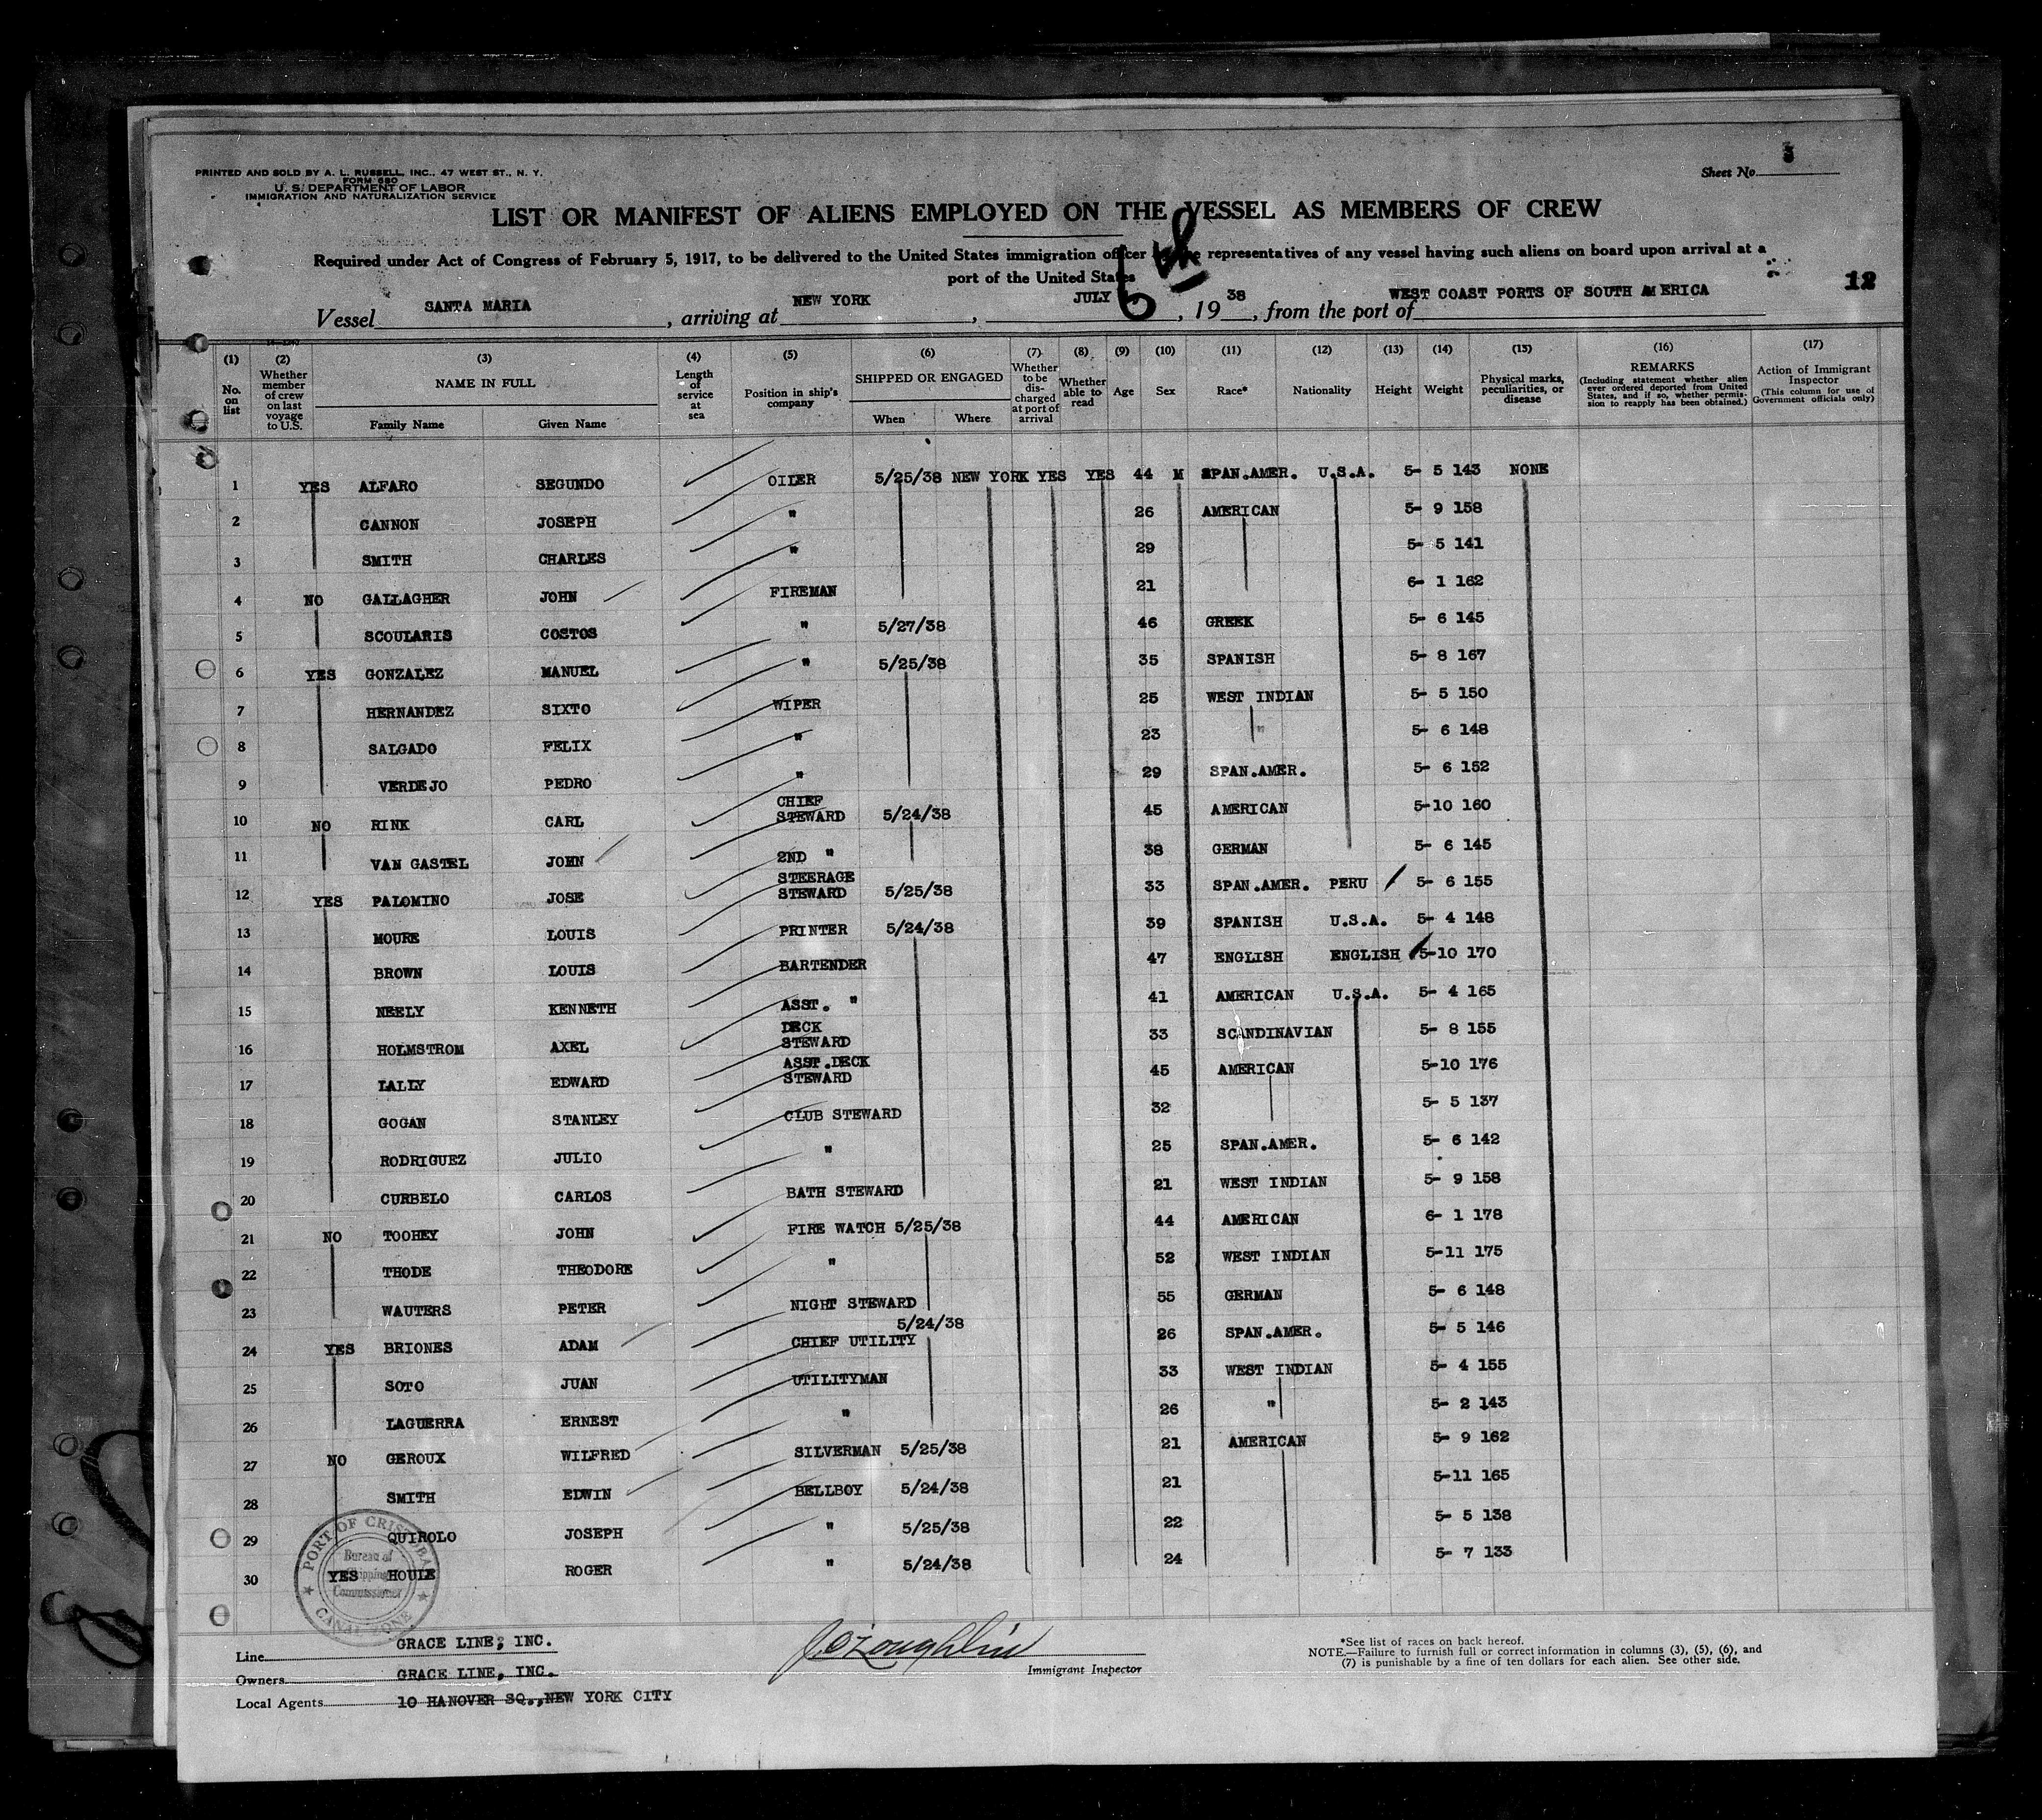 PRINTED AND SOLD BY A. L. RUSSELL, INC., 47 WEST ST., N. Y.
FORM 680
U. S. DEPARTMENT OF LABOR
IMMIGRATION AND NATURALIZATION SERVICE
Sheet No. 3
LIST OR MANIFEST OF ALIENS EMPLOYED ON THE VESSEL AS MEMBERS OF CREW
Required under Act of Congress of February 5, 1917, to be delivered to the United States immigration officer by the representatives of any vessel having such aliens on board upon arrival at a
port of the United States
12
Vessel SANTA MARIA, arriving at NEW YORK, JULY 6th, 1938, from the port of WEST COAST PORTS OF SOUTH AMERICA
(1) No. on list
(2) Whether member of crew on last voyage to U.S.
(3) NAME IN FULL Family Name Given Name
(4) Length of service at sea
(5) Position in ship's company
(6) SHIPPED OR ENGAGED When Where
(7) Whether to be discharged at port of arrival
(8) Whether able to read
(9) Age
(10) Sex
(11) Race*
(12) Nationality
(13) Height
(14) Weight
(15) Physical marks, peculiarities, or disease
(16) REMARKS (Including statement whether alien ever ordered deported from United States, and if so, whether permission to reapply has been obtained.)
(17) Action of Immigrant Inspector (This column for use of Government officials only)
1 YES ALFARO SEGUNDO OILER 5/25/38 NEW YORK YES YES 44 M SPAN.AMER. U.S.A. 5- 5 143 NONE
2 CANNON JOSEPH " 26 AMERICAN 5- 9 158
3 SMITH CHARLES " 29 5- 5 141
4 NO GALLAGHER JOHN FIREMAN 21 6- 1 162
5 SCOULARIS COSTOS " 5/27/38 46 GREEK 5- 6 145
6 YES GONZALEZ MANUEL " 5/25/38 35 SPANISH 5- 8 167
7 HERNANDEZ SIXTO WIPER 25 WEST INDIAN 5- 5 150
8 SALGADO FELIX " 23 " 5- 6 148
9 VERDEJO PEDRO " 29 SPAN.AMER. 5- 6 152
10 NO RINK CARL CHIEF STEWARD 5/24/38 45 AMERICAN 5-10 160
11 VAN GASTEL JOHN 2ND " 38 GERMAN 5- 6 145
12 YES PALOMINO JOSE STEERAGE STEWARD 5/25/38 33 SPAN.AMER. PERU 5- 6 155
13 MOURE LOUIS PRINTER 5/24/38 39 SPANISH U.S.A. 5- 4 148
14 BROWN LOUIS BARTENDER 47 ENGLISH ENGLISH 5-10 170
15 NEELY KENNETH ASST. " 41 AMERICAN U.S.A. 5- 4 165
16 HOLMSTROM AXEL DECK STEWARD 33 SCANDINAVIAN 5- 8 155
17 LALLY EDWARD ASST.DECK STEWARD 45 AMERICAN 5-10 176
18 GOGAN STANLEY CLUB STEWARD 32 5- 5 137
19 RODRIGUEZ JULIO " 25 SPAN.AMER. 5- 6 142
20 CURBELO CARLOS BATH STEWARD 21 WEST INDIAN 5- 9 158
21 NO TOOHEY JOHN FIRE WATCH 5/25/38 44 AMERICAN 6- 1 178
22 THODE THEODORE " 52 WEST INDIAN 5-11 175
23 WAUTERS PETER NIGHT STEWARD 55 GERMAN 5- 6 148
24 YES BRIONES ADAM CHIEF UTILITY 5/24/38 26 SPAN.AMER. 5- 5 146
25 SOTO JUAN UTILITYMAN 33 WEST INDIAN 5- 4 155
26 LAGUERRA ERNEST " 26 " 5- 2 143
27 NO GEROUX WILFRED SILVERMAN 5/25/38 21 AMERICAN 5- 9 162
28 SMITH EDWIN BELLBOY 5/24/38 21 5-11 165
29 QUIROLO JOSEPH " 5/25/38 22 5- 5 138
30 YES HOULE ROGER " 5/24/38 24 5- 7 133
PORT OF CRISTOBAL
Bureau of
Shipping
Commissioner
CANAL ZONE
Line GRACE LINE, INC.
Owners GRACE LINE, INC.
Local Agents 10 HANOVER SQ., NEW YORK CITY
Immigrant Inspector
*See list of races on back hereof.
NOTE.—Failure to furnish full or correct information in columns (3), (5), (6), and
(7) is punishable by a fine of ten dollars for each alien. See other side.